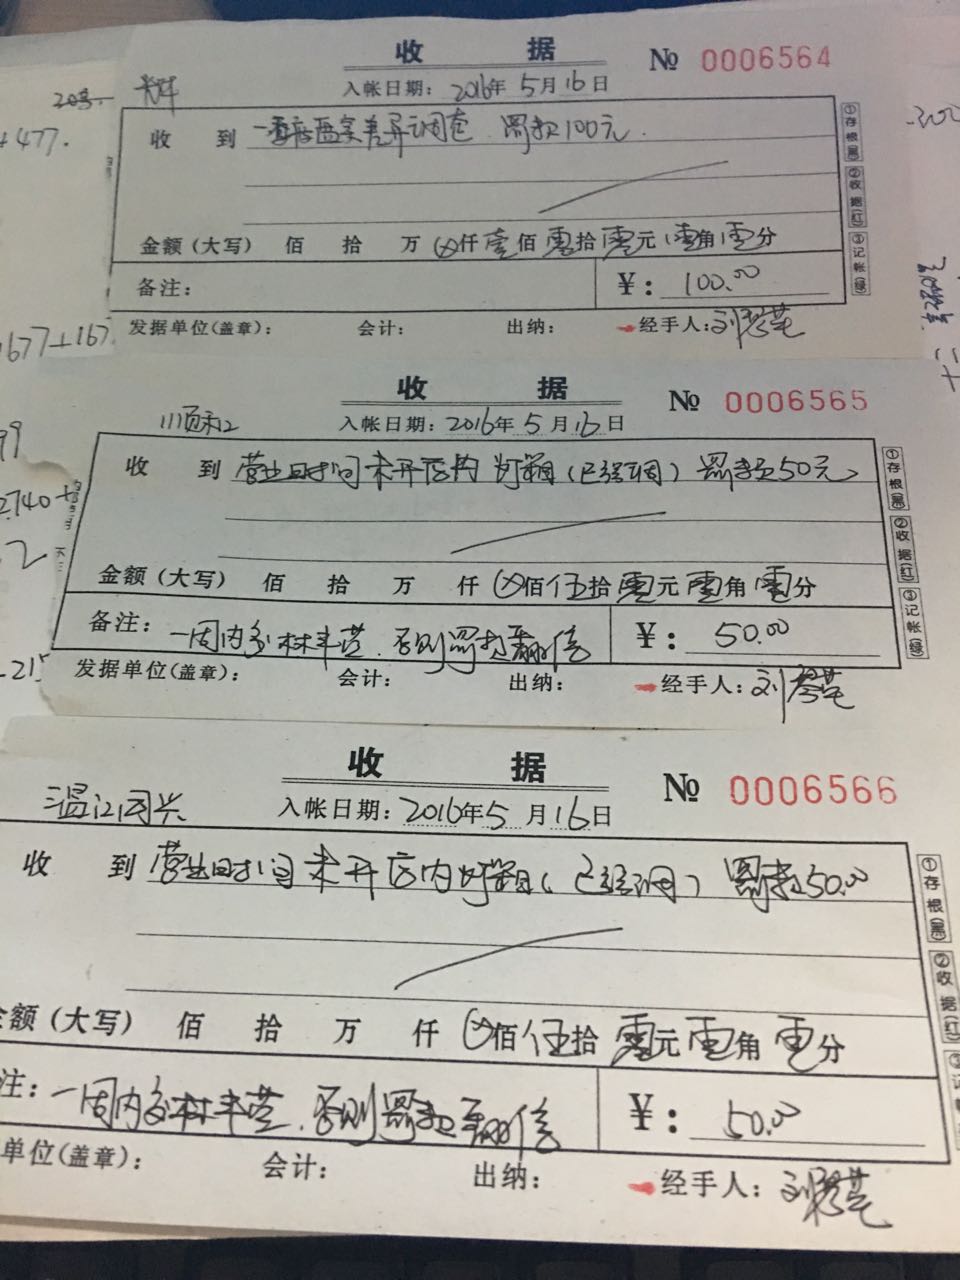 收 据
№ 0006564
入帐日期：2016年5月16日
收 到 罚款100元.
金额（大写） 佰 拾 万 仟壹佰零拾零元零角零分
备注： ￥：100.00
发据单位(盖章)： 会计： 出纳： 经手人：刘
①存根(黑) ②收据(红) ③记帐(绿)
收 据
№ 0006565
入帐日期：2016年5月16日
收 到 营业时间未开店内灯箱(已强调) 罚款50元
金额（大写） 佰 拾 万 仟 佰伍拾零元零角零分
备注：一周内交林丰营.否则罚款翻倍 ￥：50.00
发据单位(盖章)： 会计： 出纳： 经手人：刘
①存根(黑) ②收据(红) ③记帐(绿)
收 据
№ 0006566
温江同兴
入帐日期：2016年5月16日
收 到 营业时间未开店内灯箱(已强调) 罚款50.00
金额（大写） 佰 拾 万 仟 佰伍拾零元零角零分
注：一周内交林丰营.否则罚款翻倍 ￥：50.00
单位(盖章)： 会计： 出纳： 经手人：刘
①存根(黑) ②收据(红) ③记